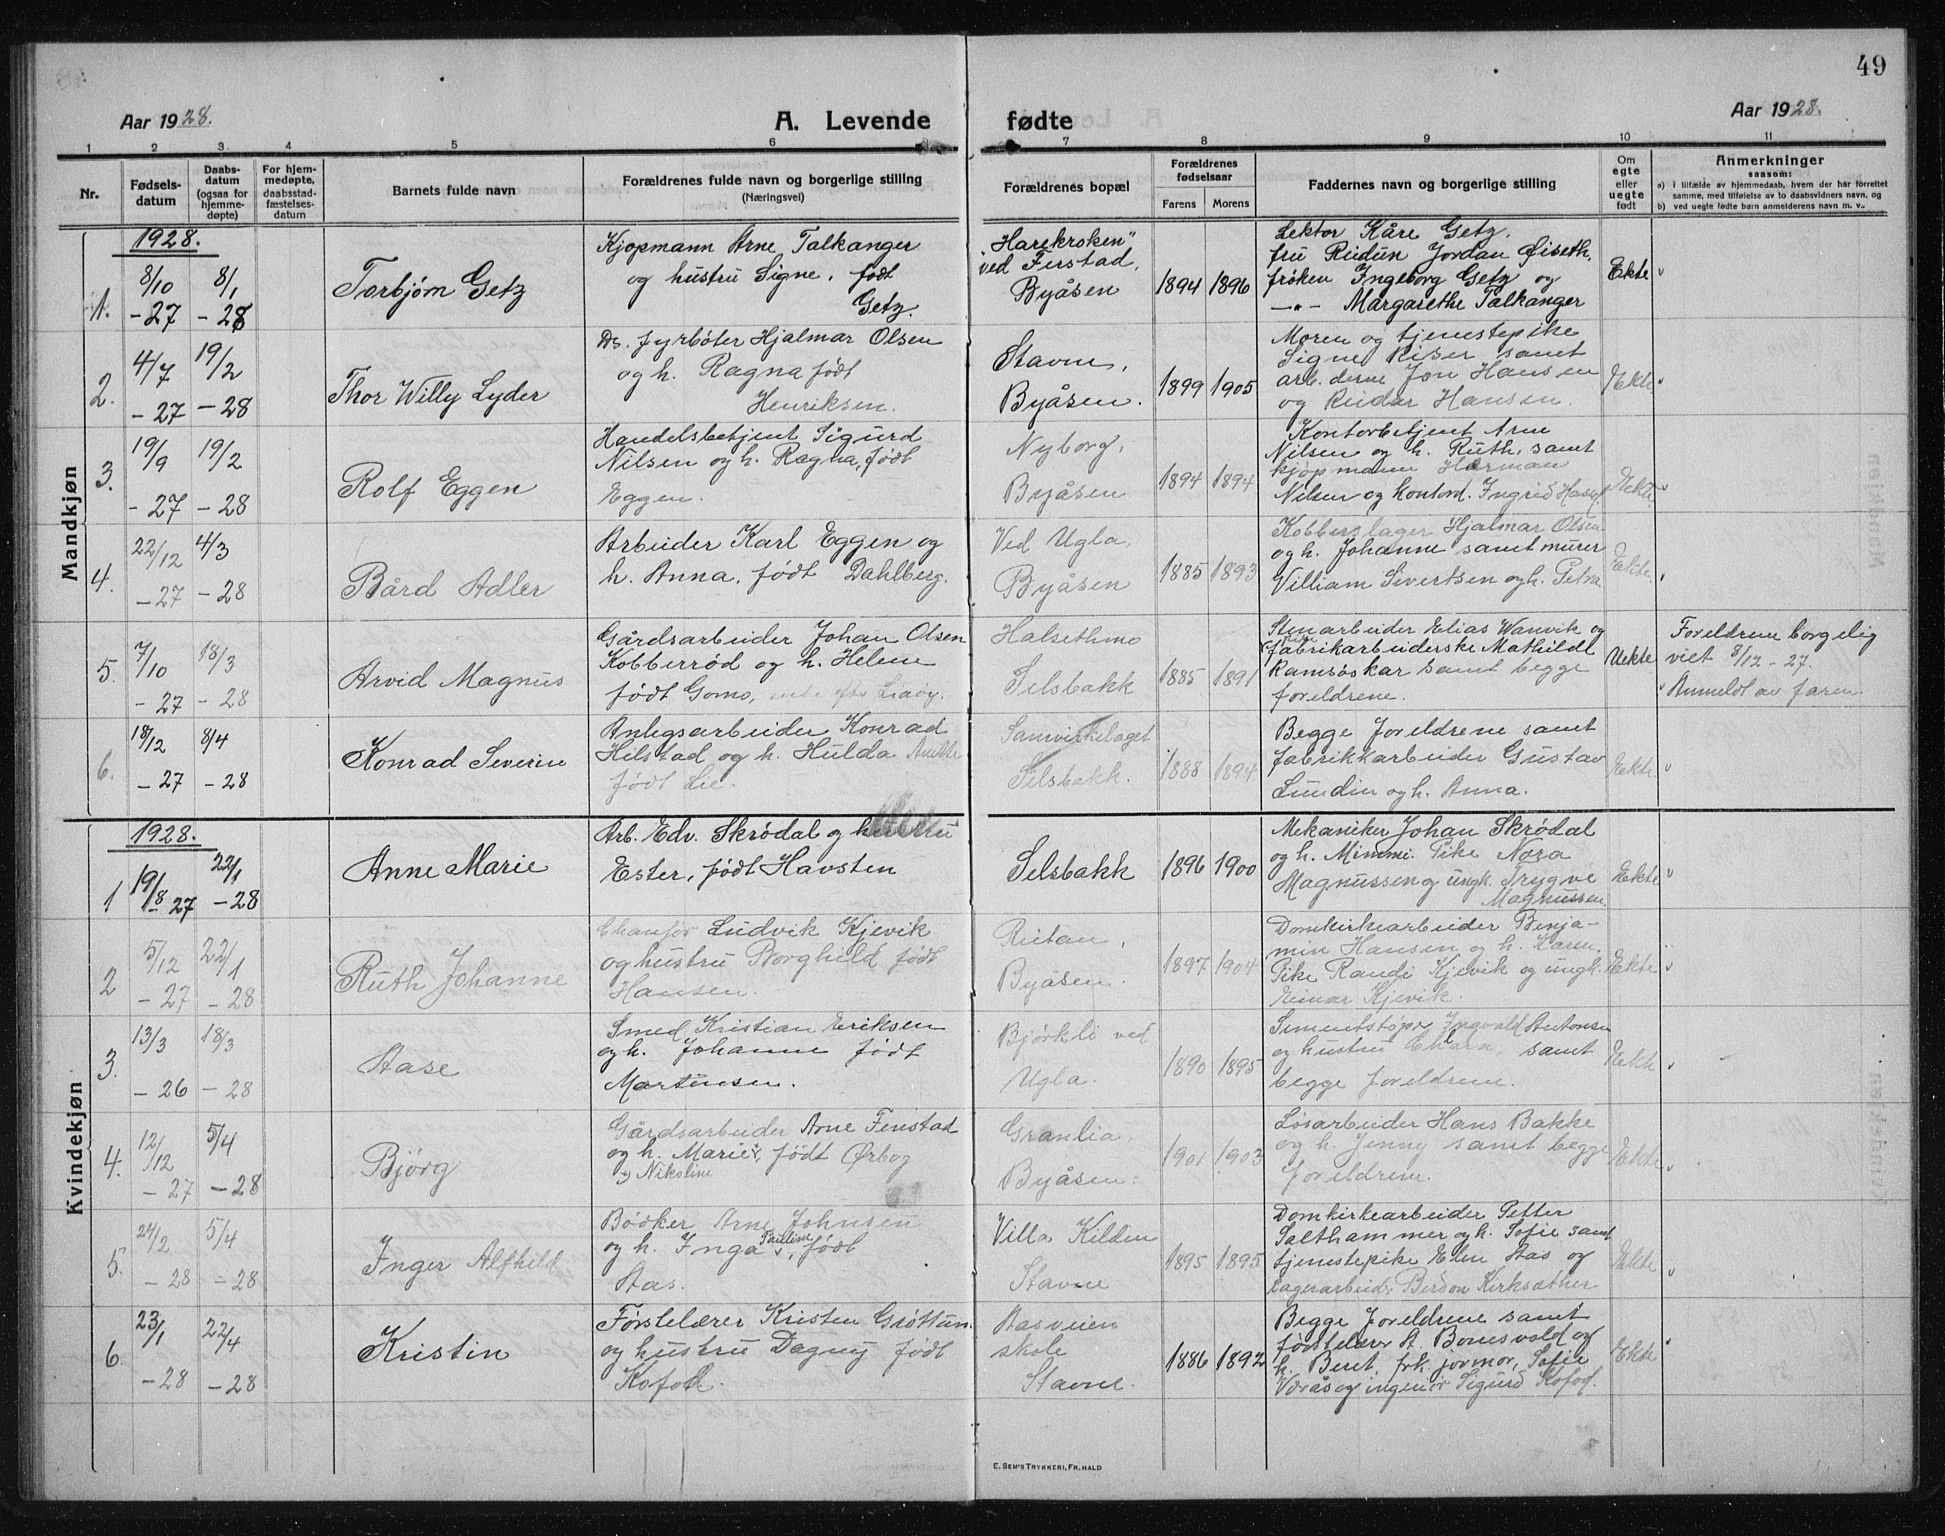 49
Aar 1928.
A. Levende
fødte
Aar 1928.
1 2 3 4 5 6 7 8 9 10 11
Nr.
Fødsels-
datum
Daabs-
datum
(ogsaa for
hjemme-
døpte)
For hjem-
medøpte,
daabsstad-
fæstelses-
datum
Barnets fulde navn
Forældrenes fulde navn og borgerlige stilling
(Næringsvei)
Forældrenes bopæl
Forældrenes
fødselsaar
Farens Morens
Faddernes navn og borgerlige stilling
Om
egte
eller
uegte
født
Anmerkninger
saasom:
a) i tilfælde av hjemmedaab, hvem der har forrettet
samme, med tilføielse av to daabsvidners navn, og
b) ved uegte fødte barn anmelderens navn m. v..
Mandkjøn
1928.
1.
8/10 -27
8/1 -28
Torbjørn Getz
Kjøpmann Arne Falkanger
og hustru Signe, født
Getz.
"Harekroken"
ved Ferstad,
Byåsen
1894 1896
Lektor Kåre Getz.
fru Reidun Jordan Øiseth,
frøken Ingeborg Getz og
—"— Margarethe Falkanger
Ekte "
2.
4/7 -27
19/2 -28
Thor Willy Lyder
Ds. fyrbøter Hjalmar Olsen
og h. Ragna født
Henriksen.
Stavne,
Byåsen.
1899 1905
Moren og tjenestepike
Signe Riser samt
arb.derne Jon Hansen
og Reidar Hansen.
Ekte "
3.
19/9 -27
19/2 -28
Rolf Eggen
Handelsbetjent Sigurd
Nilsen og h. Ragna, født
Eggen.
Nyborg,
Byåsen
1894 1894
Kontorbetjent Arne
Nilsen og h. Ruth, samt
kjøpmann Herman
Nilsen og kontord. Ingrid
Ekte "
4.
22/12 -27
4/3 -28
Bård Adler
Arbeider Karl Eggen og
h. Anna, født Dahlberg.
Ved Ugla,
Byåsen
1885 1893
Kobberslager Hjalmar Olsen
og h. Johanne samt murer
William Sivertsen og h. Petra
Ekte "
5.
7/10 -27
18/3 -28
Arvid Magnus
Gårdsarbeider Johan Olsen
Kobberrød og h. Helene
født Gomo,
Halsethmo
Selsbakk
1885 1891
Stenarbeider Elias Wanvik og
fabrikarbeiderske Mathilde
Ramsøskar samt begge
foreldrene.
Uekte
Foreldrene borgelig
viet 8/12 - 27.
" Anmeldt av faren.
6.
18/12 -27
8/4 -28
Konrad Severin
Anlegsarbeider Konrad
Hilstad og h. Hulda Anette
født Lie.
Samvirkelaget
Selsbakk.
1888 1894
Begge foreldrene samt
fabrikkarbeider Gustav
Lundin og h. Anna.
Ekte "
Kvindekjøn
1928.
1
19/8 27
22/1 -28
Anne Marie
Arb. Edv. Skrødal og hustru
Ester, født Havsten
Selsbakk
1896 1900
Mekaniker Johan Skrødal
og h. Mimmi. Pike Nora
Magnussen og ungk. Trygve
Magnussen
Ekte "
2
5/12 -27
22/1 -28
Ruth Johanne
Chaufør Ludvik Kjevik
og hustru Borghild født
Hansen.
Reitan,
Byåsen.
1897 1904
Domkirkearbeider Benja-
min Hansen og h. Karen.
Pike Randi Kjevik og ungk.
Einar Kjevik.
Ekte "
3.
13/3 -26
18/3 -28
Aase
Smed Kristian Eriksen
og h. Johanne født
Martinsen.
Bjørkli ved
Ugla.
1890 1895
Sementstøper Ingvald Antonsen
og hustru Clara, samt
begge foreldrene.
Ekte "
4.
12/12 -27
5/4 -28
Bjørg
Gårdsarbeider Arne Finstad
og h. Marie, født Ørbog
Nikoline
Granlia,
Byåsen.
1901 1903
Løsarbeider Hans Bakke
og h. Jenny samt begge
foreldrene.
Ekte "
5.
24/2 -28
5/4 -28
Inger Alfhild
Bødker Arne Johnsen
og h. Inga Pauline, født
Aas.
Villa Kilden
Stavne
1895 1895
Domkirkearbeider Petter
Salthammer og h. Sofie samt
tjenestepike Elen Aas og
Lagerarbeider Kirksæther
Ekte "
6.
23/1 -28
22/4 -28
Kristin
Førstelærer Kristen Grøttun
og hustru Dagny født
Kofod.
Aasveien
skole
Stavne.
1886 1892
Begge foreldrene samt
førstelærer A. Bonesvold og
h. Beret, frk. jormor, Sofie
Værås og ingeniør Sigurd Kofod.
Ekte "
E. Sem's Trykkeri, Fr.hald